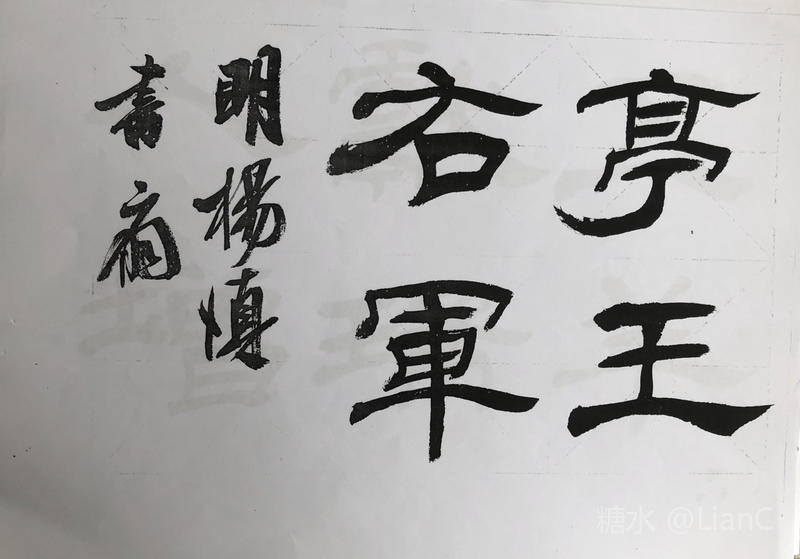 亭王
右軍
明楊慎
糖水 @LianC